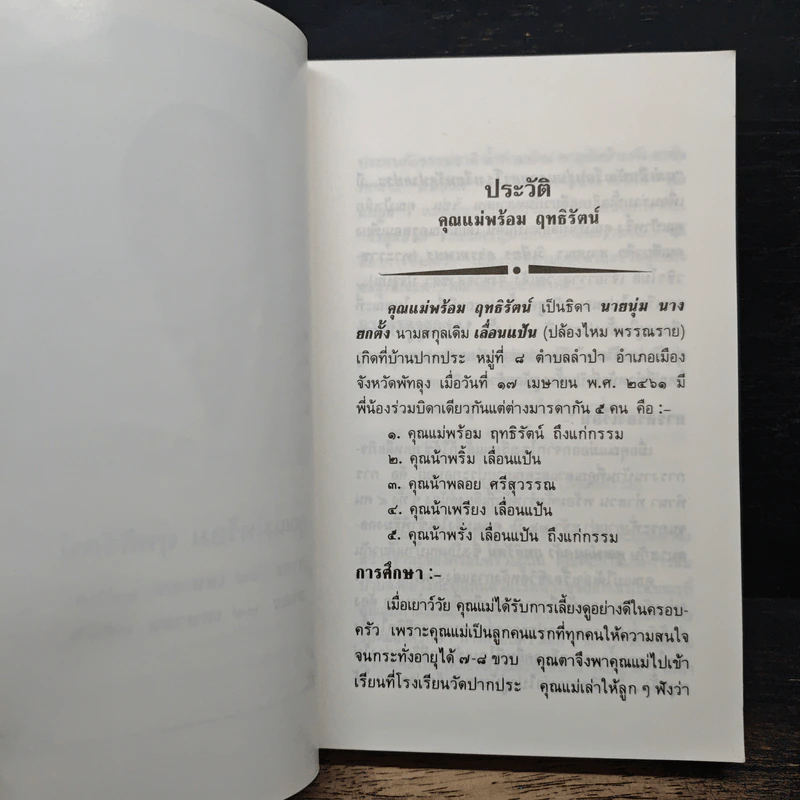 ประวัติ
คุณแม่พร้อม ฤทธิรัตน์
คุณแม่พร้อม ฤทธิรัตน์ เป็นธิดา นายนุ่ม นาง
ยกตั้ง นามสกุลเดิม เลื่อนแป้น (ปล้องไหม พรรณราย)
เกิดที่บ้านปากประ หมู่ที่ ๘ ตำบลลำปำ อำเภอเมือง
จังหวัดพัทลุง เมื่อวันที่ ๑๗ เมษายน พ.ศ. ๒๔๖๑ มี
พี่น้องร่วมบิดาเดียวกันแต่ต่างมารดากัน ๕ คน คือ :-
๑. คุณแม่พร้อม ฤทธิรัตน์ ถึงแก่กรรม
๒. คุณน้าพริ้ม เลื่อนแป้น
๓. คุณน้าพลอย ศรีสุวรรณ
๔. คุณน้าเพรียง เลื่อนแป้น
๕. คุณน้าพรั่ง เลื่อนแป้น ถึงแก่กรรม
การศึกษา :-
เมื่อเยาว์วัย คุณแม่ได้รับการเลี้ยงดูอย่างดีในครอบ-
ครัว เพราะคุณแม่เป็นลูกคนแรกที่ทุกคนให้ความสนใจ
จนกระทั่งอายุได้ ๗-๘ ขวบ คุณตาจึงพาคุณแม่ไปเข้า
เรียนที่โรงเรียนวัดปากประ คุณแม่เล่าให้ลูก ๆ ฟังว่า